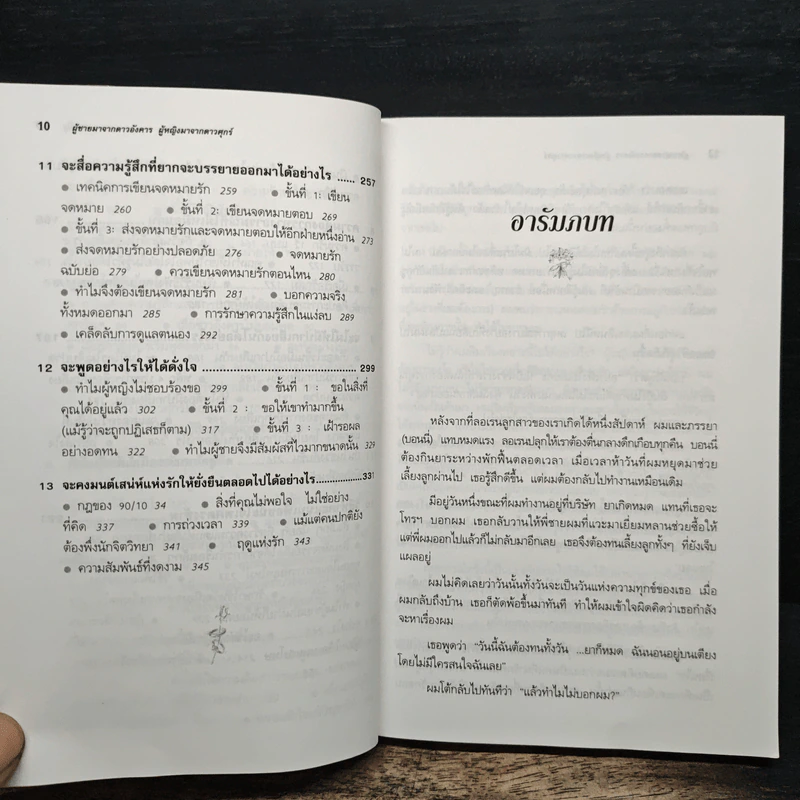 10 ผู้ชายมาจากดาวอังคาร ผู้หญิงมาจากดาวศุกร์
11 จะสื่อความรู้สึกที่ยากจะบรรยายออกมาได้อย่างไร ...... 257
● เทคนิคการเขียนจดหมายรัก 259 ● ขั้นที่ 1: เขียน
จดหมาย 260 ● ขั้นที่ 2: เขียนจดหมายตอบ 269
● ขั้นที่ 3: ส่งจดหมายรักและจดหมายตอบให้อีกฝ่ายหนึ่งอ่าน 273
● ส่งจดหมายรักอย่างปลอดภัย 276 ● จดหมายรัก
ฉบับย่อ 279 ● ควรเขียนจดหมายรักตอนไหน 280
● ทำไมจึงต้องเขียนจดหมายรัก 281 ● บอกความจริง
ทั้งหมดออกมา 285 ● การรักษาความรู้สึกในแง่ลบ 289
● เคล็ดลับการดูแลตนเอง 292
12 จะพูดอย่างไรให้ได้ดั่งใจ ................................................ 299
● ทำไมผู้หญิงไม่ชอบร้องขอ 299 ● ขั้นที่ 1 : ขอในสิ่งที่
คุณได้อยู่แล้ว 302 ● ขั้นที่ 2 : ขอให้เขาทำมากขึ้น
(แม้รู้ว่าจะถูกปฏิเสธก็ตาม) 317 ● ขั้นที่ 3 : เฝ้ารอผล
อย่างอดทน 322 ● ทำไมผู้ชายจึงมีสัมผัสที่ไวมากขนาดนั้น 329
13 จะคงมนต์เสน่ห์แห่งรักให้ยั่งยืนตลอดไปได้อย่างไร.................. 331
● กฎของ 90/10 34 ● สิ่งที่คุณไม่พอใจ ไม่ใช่อย่าง
ที่คิด 337 ● การถ่วงเวลา 339 ● แม้แต่คนปกติยัง
ต้องพึ่งนักจิตวิทยา 341 ● ฤดูแห่งรัก 343
● ความสัมพันธ์ที่งดงาม 345
อารัมภบท
หลังจากที่ลอเรนลูกสาวของเราเกิดได้หนึ่งสัปดาห์ ผมและภรรยา
(บอนนี่) แทบหมดแรง ลอเรนปลุกให้เราต้องตื่นกลางดึกเกือบทุกคืน บอนนี่
ต้องกินยาระหว่างพักฟื้นตลอดเวลา เมื่อเวลาห้าวันที่ผมหยุดมาช่วย
เลี้ยงลูกผ่านไป เธอรู้สึกดีขึ้น แต่ผมต้องกลับไปทำงานเหมือนเดิม
มีอยู่วันหนึ่งขณะที่ผมทำงานอยู่ที่บริษัท ยาเกิดหมด แทนที่เธอจะ
โทรฯ บอกผม เธอกลับวานให้พี่ชายผมที่แวะมาเยี่ยมหลานช่วยซื้อให้
แต่พี่ผมออกไปแล้วก็ไม่กลับมาอีกเลย เธอจึงต้องทนเลี้ยงลูกทั้งๆ ที่ยังเจ็บ
แผลอยู่
ผมไม่คิดเลยว่าวันนั้นทั้งวันจะเป็นวันแห่งความทุกข์ของเธอ เมื่อ
ผมกลับถึงบ้าน เธอก็ตัดพ้อขึ้นมาทันที ทำให้ผมเข้าใจผิดคิดว่าเธอกำลัง
จะหาเรื่องผม
เธอพูดว่า “วันนี้ฉันต้องทนทั้งวัน ...ยาก็หมด ฉันนอนอยู่บนเตียง
โดยไม่มีใครสนใจฉันเลย”
ผมโต้กลับไปทันทีว่า “แล้วทำไมไม่บอกผม?”